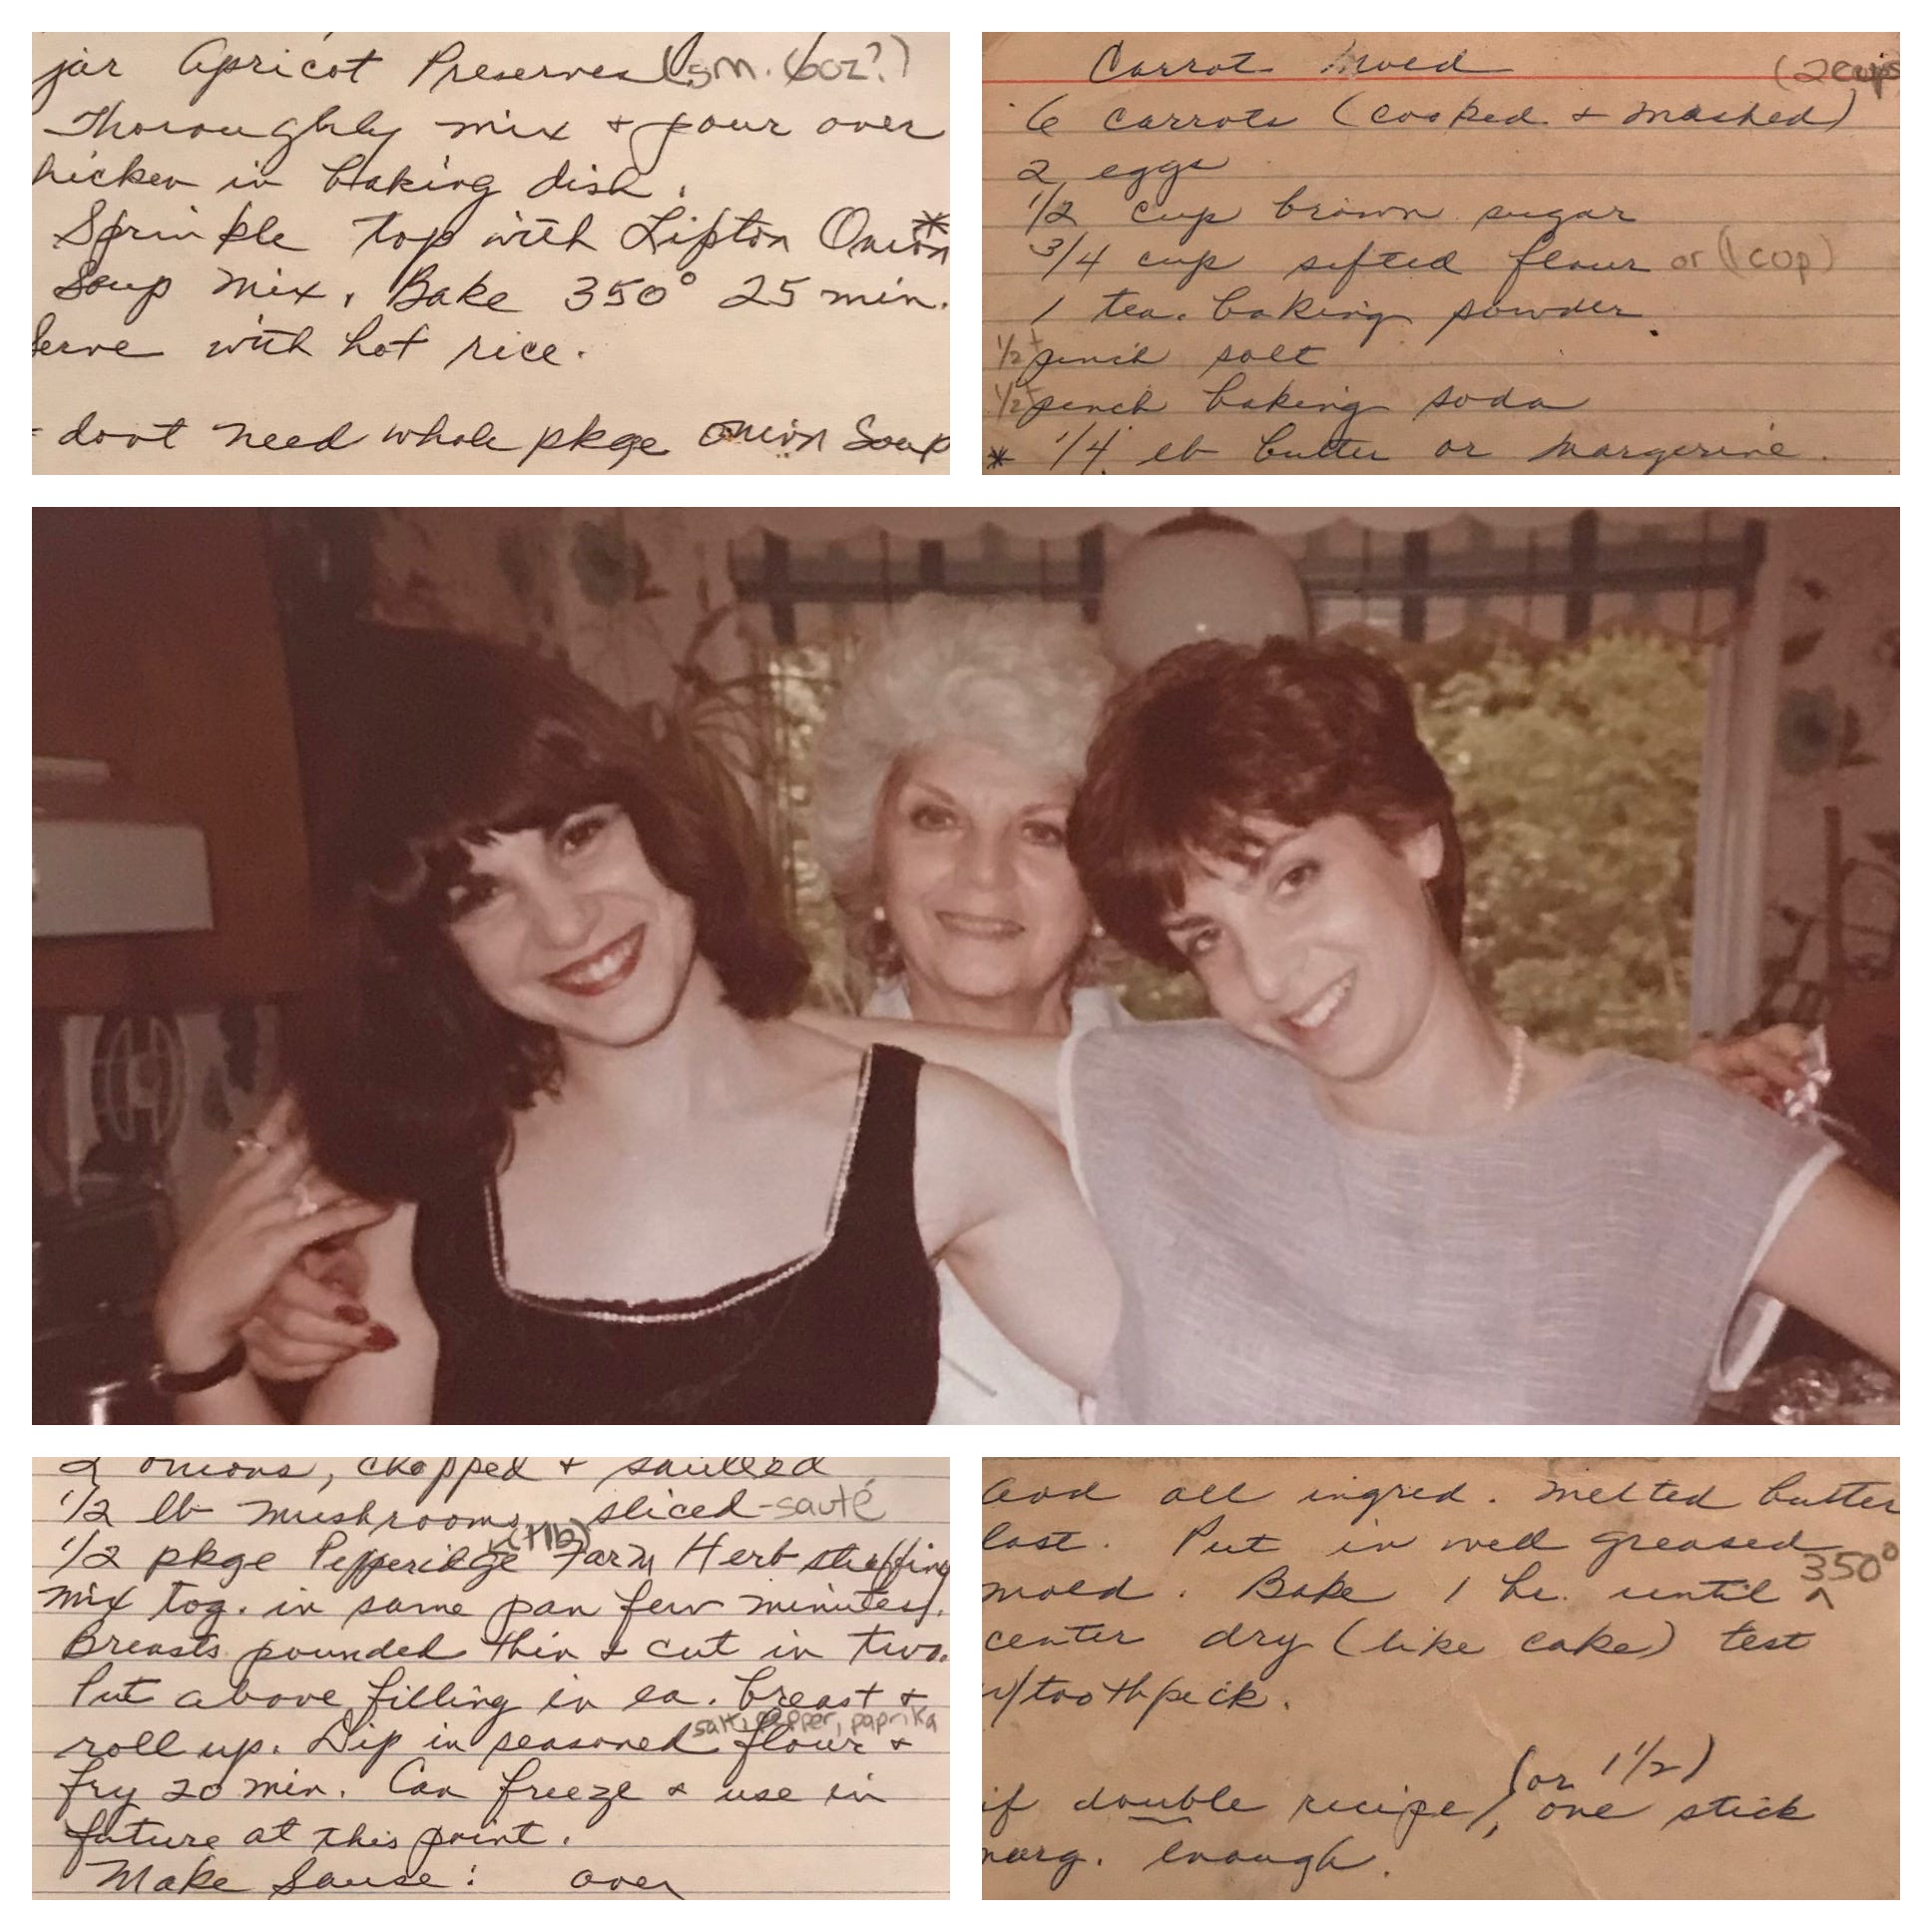 jar Apricot Preserves (sm. 6oz?)
Thoroughly mix + pour over
hicken in baking dish.
Sprinkle top with Lipton Onion *
Soup mix. Bake 350° 25 min.
Serve with hot rice.
- dont need whole pkge onion Soup
Carrot Mold
(2 cups
6 carrots (cooked + mashed)
2 eggs
1/2 cup brown sugar
3/4 cup sifted flour or (1 cup)
1 tea. baking powder
1/2 t pinch salt
1/2 t pinch baking soda
* 1/4 lb butter or margerine.
2 onions, chopped + sautéed
1/2 lb mushrooms, sliced - sauté
(1 lb)
1/2 pkge Pepperidge Farm Herb stuffing
mix tog. in same pan few minutes.
Breasts pounded thin & cut in two.
Put above filling in ea. breast +
salt, pepper, paprika
roll up. Dip in seasoned flour +
fry 20 min. Can freeze & use in
future at this point.
Make Sauce: over
Add all ingred. Melted butter
last. Put in well greased
350°
mold. Bake 1 hr. until
center dry (like cake) test
w/toothpick.
(or 1 1/2)
if double recipe, one stick
marg. enough.